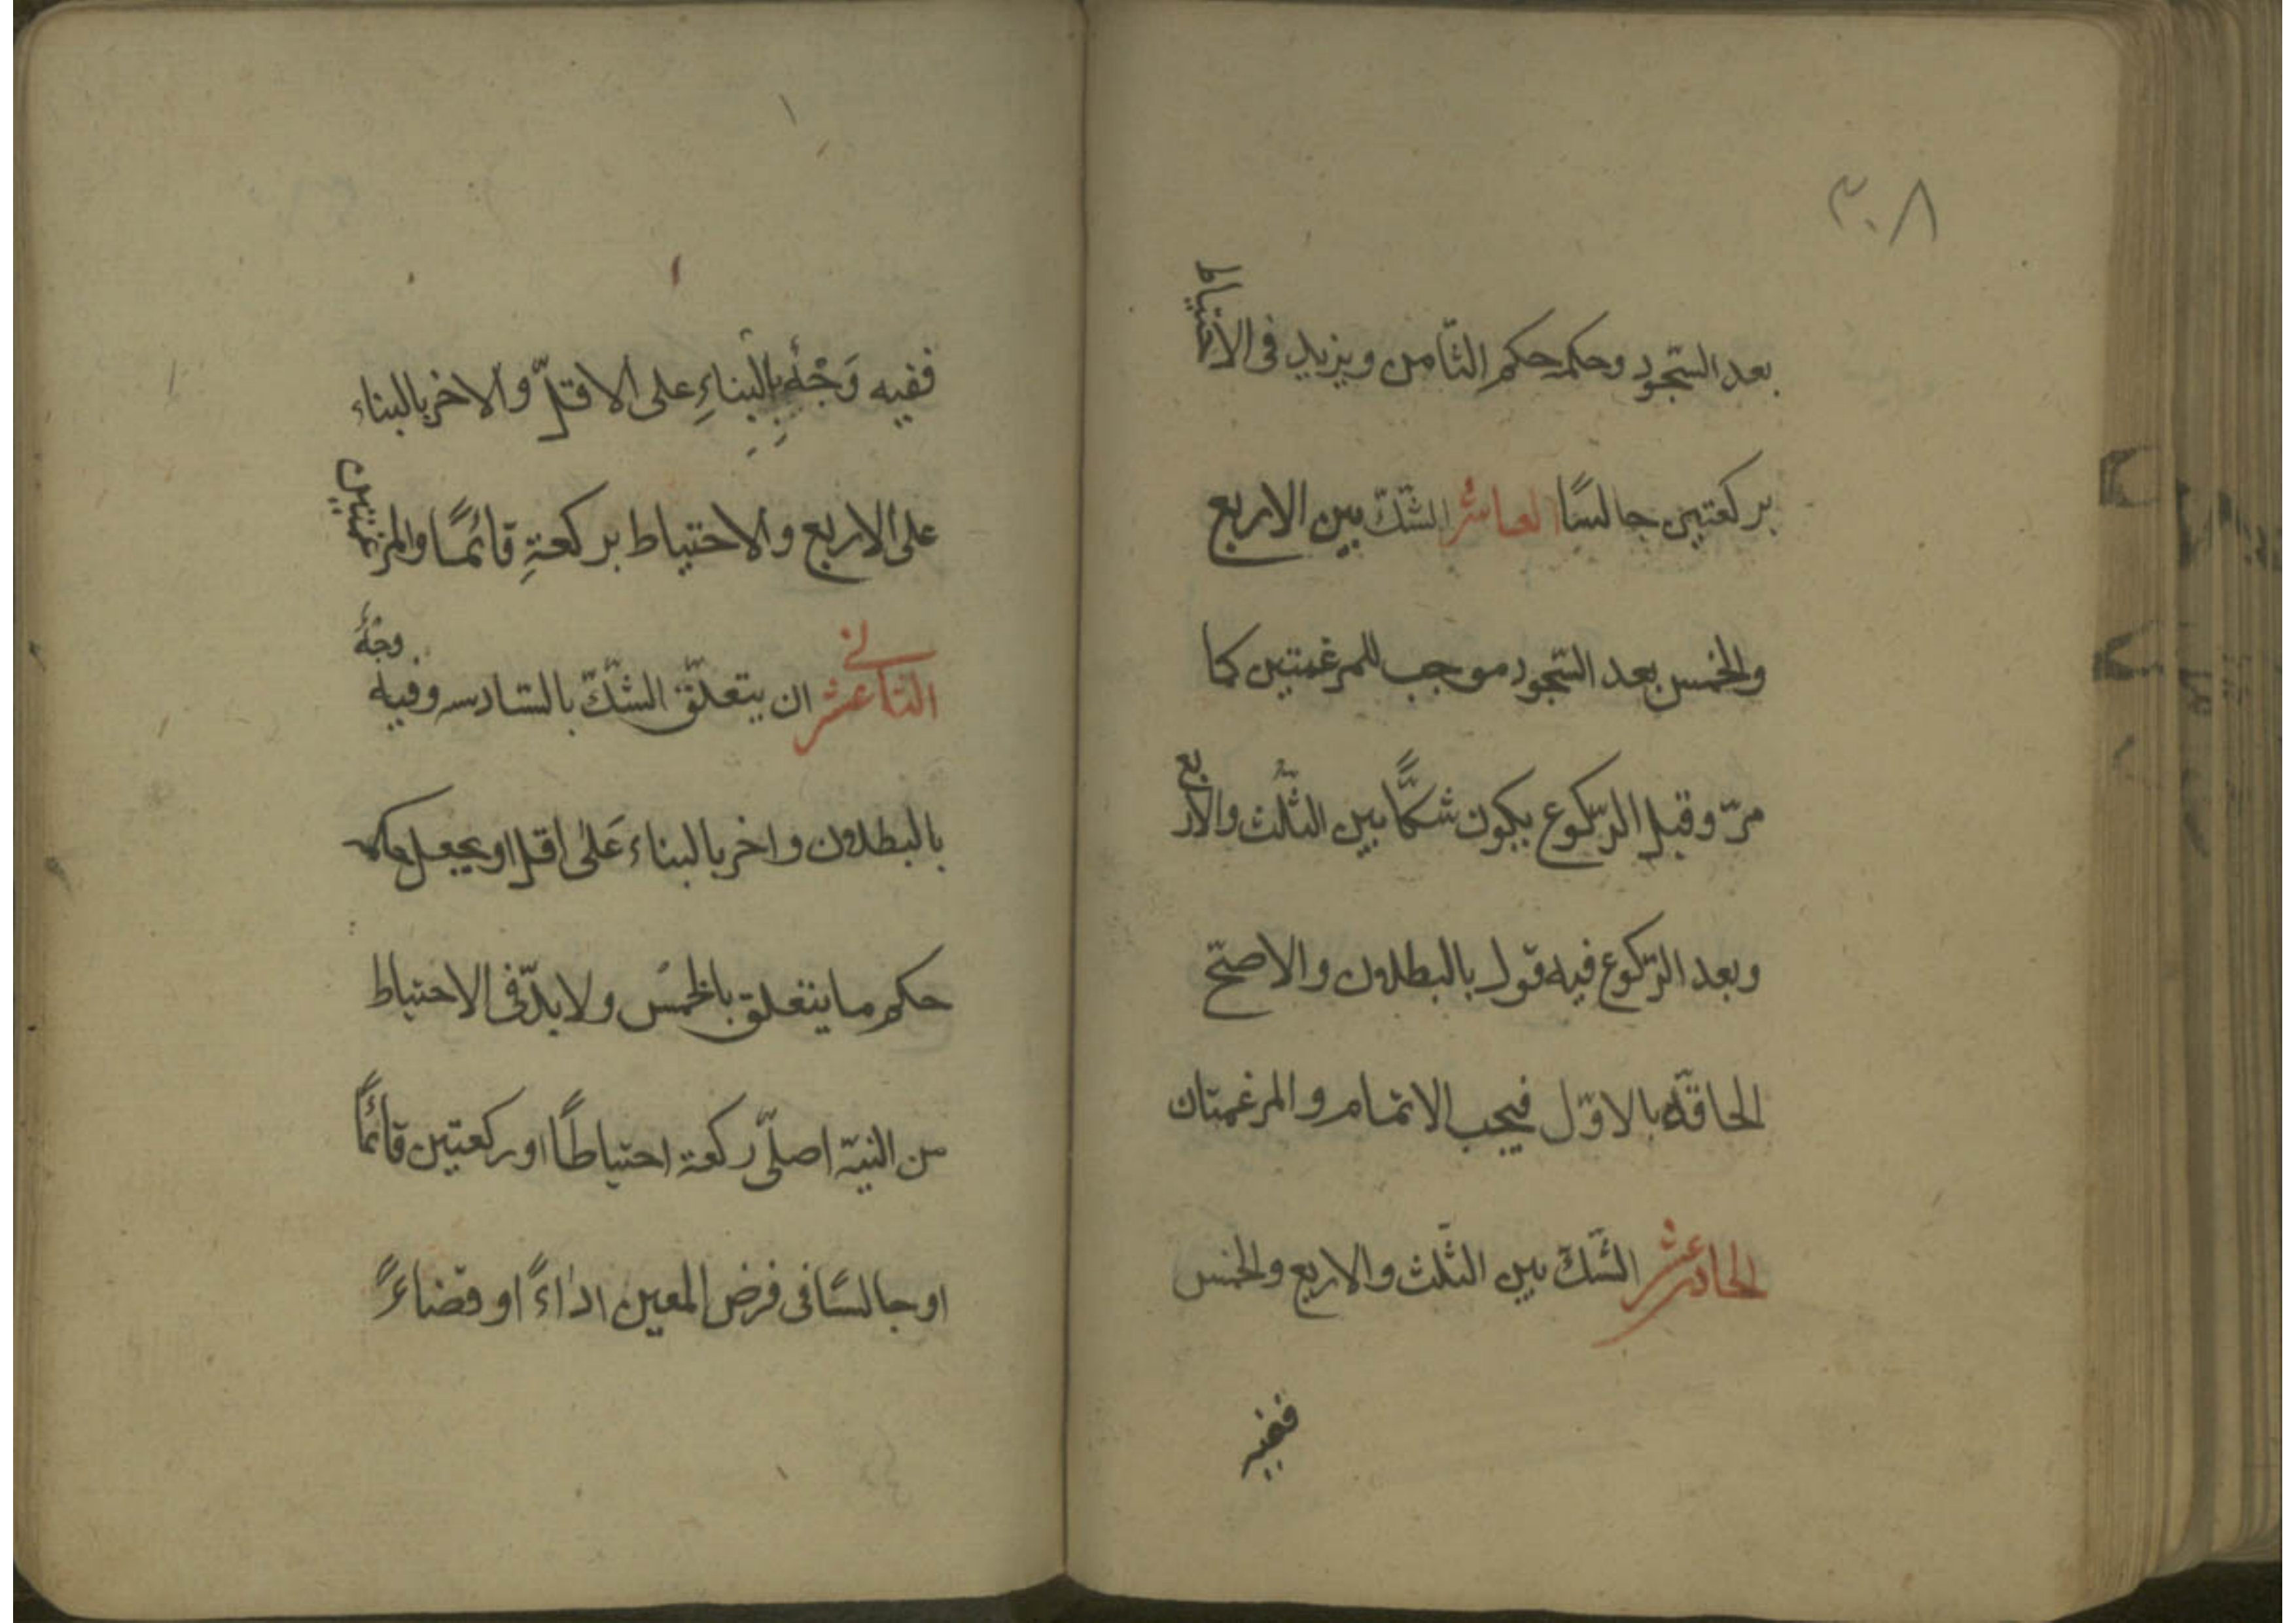 ٣٠٨
بعد السّجود وحكمه حكم الثّامن ويزيد فى الاحتياط
بركعتين جالسًا العاشر الشّكّ بين الاربع
والخمس بعد السّجود موجب للمرغمتين كما
مرّ وقبل الرّكوع يكون شكًّا بين الثّلث والاربع
وبعد الرّكوع فيه قول بالبطلان والاصحّ
الحاقه بالاوّل فيجب الاتمام والمرغمتان
الحادى عشر الشّكّ بين الثّلث والاربع والخمس
ففيه
ففيه وَجْهٌ بِالبناءِ على الاقلّ والاخر بالبناء
على الاربع والاحتياط بركعةٍ قائمًا والمرغمتين
الثانى عشر ان يتعلّق الشّكّ بالسّادسه وفيه وجهٌ
بالبطلان واخر بالبناء عَلى اقل او يجعل حكمه
حكم ما يتعلق بالخمس ولا بدّ فى الاحتياط
من النيّة اصلّى ركعة احتياطًا او ركعتين قائمًا
او جالسًا فى فرض المعين اداءً او قضاءً